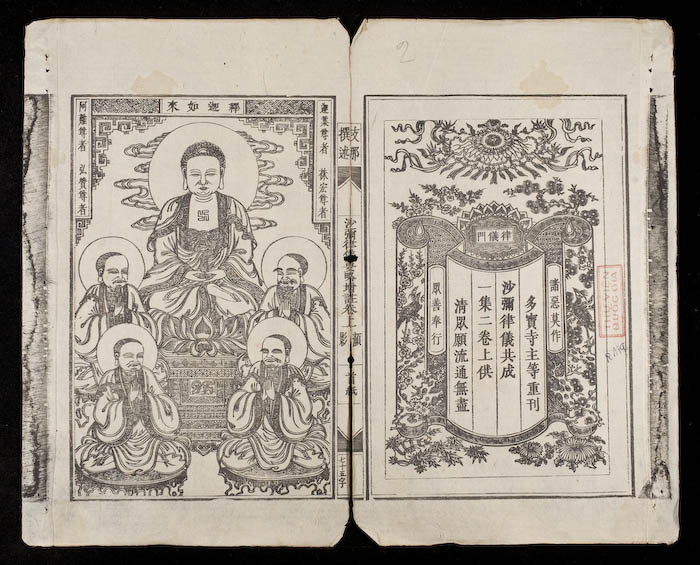 律儀門
諸惡莫作
多寶寺主等重刊
沙彌律儀共成
一集二卷上供
清眾願流通無盡
眾善奉行
2
支那
撰述
沙彌律儀要略增註卷上
七十五字
釋迦如來
迦葉尊者
袾宏尊者
阿難尊者
弘贊尊者